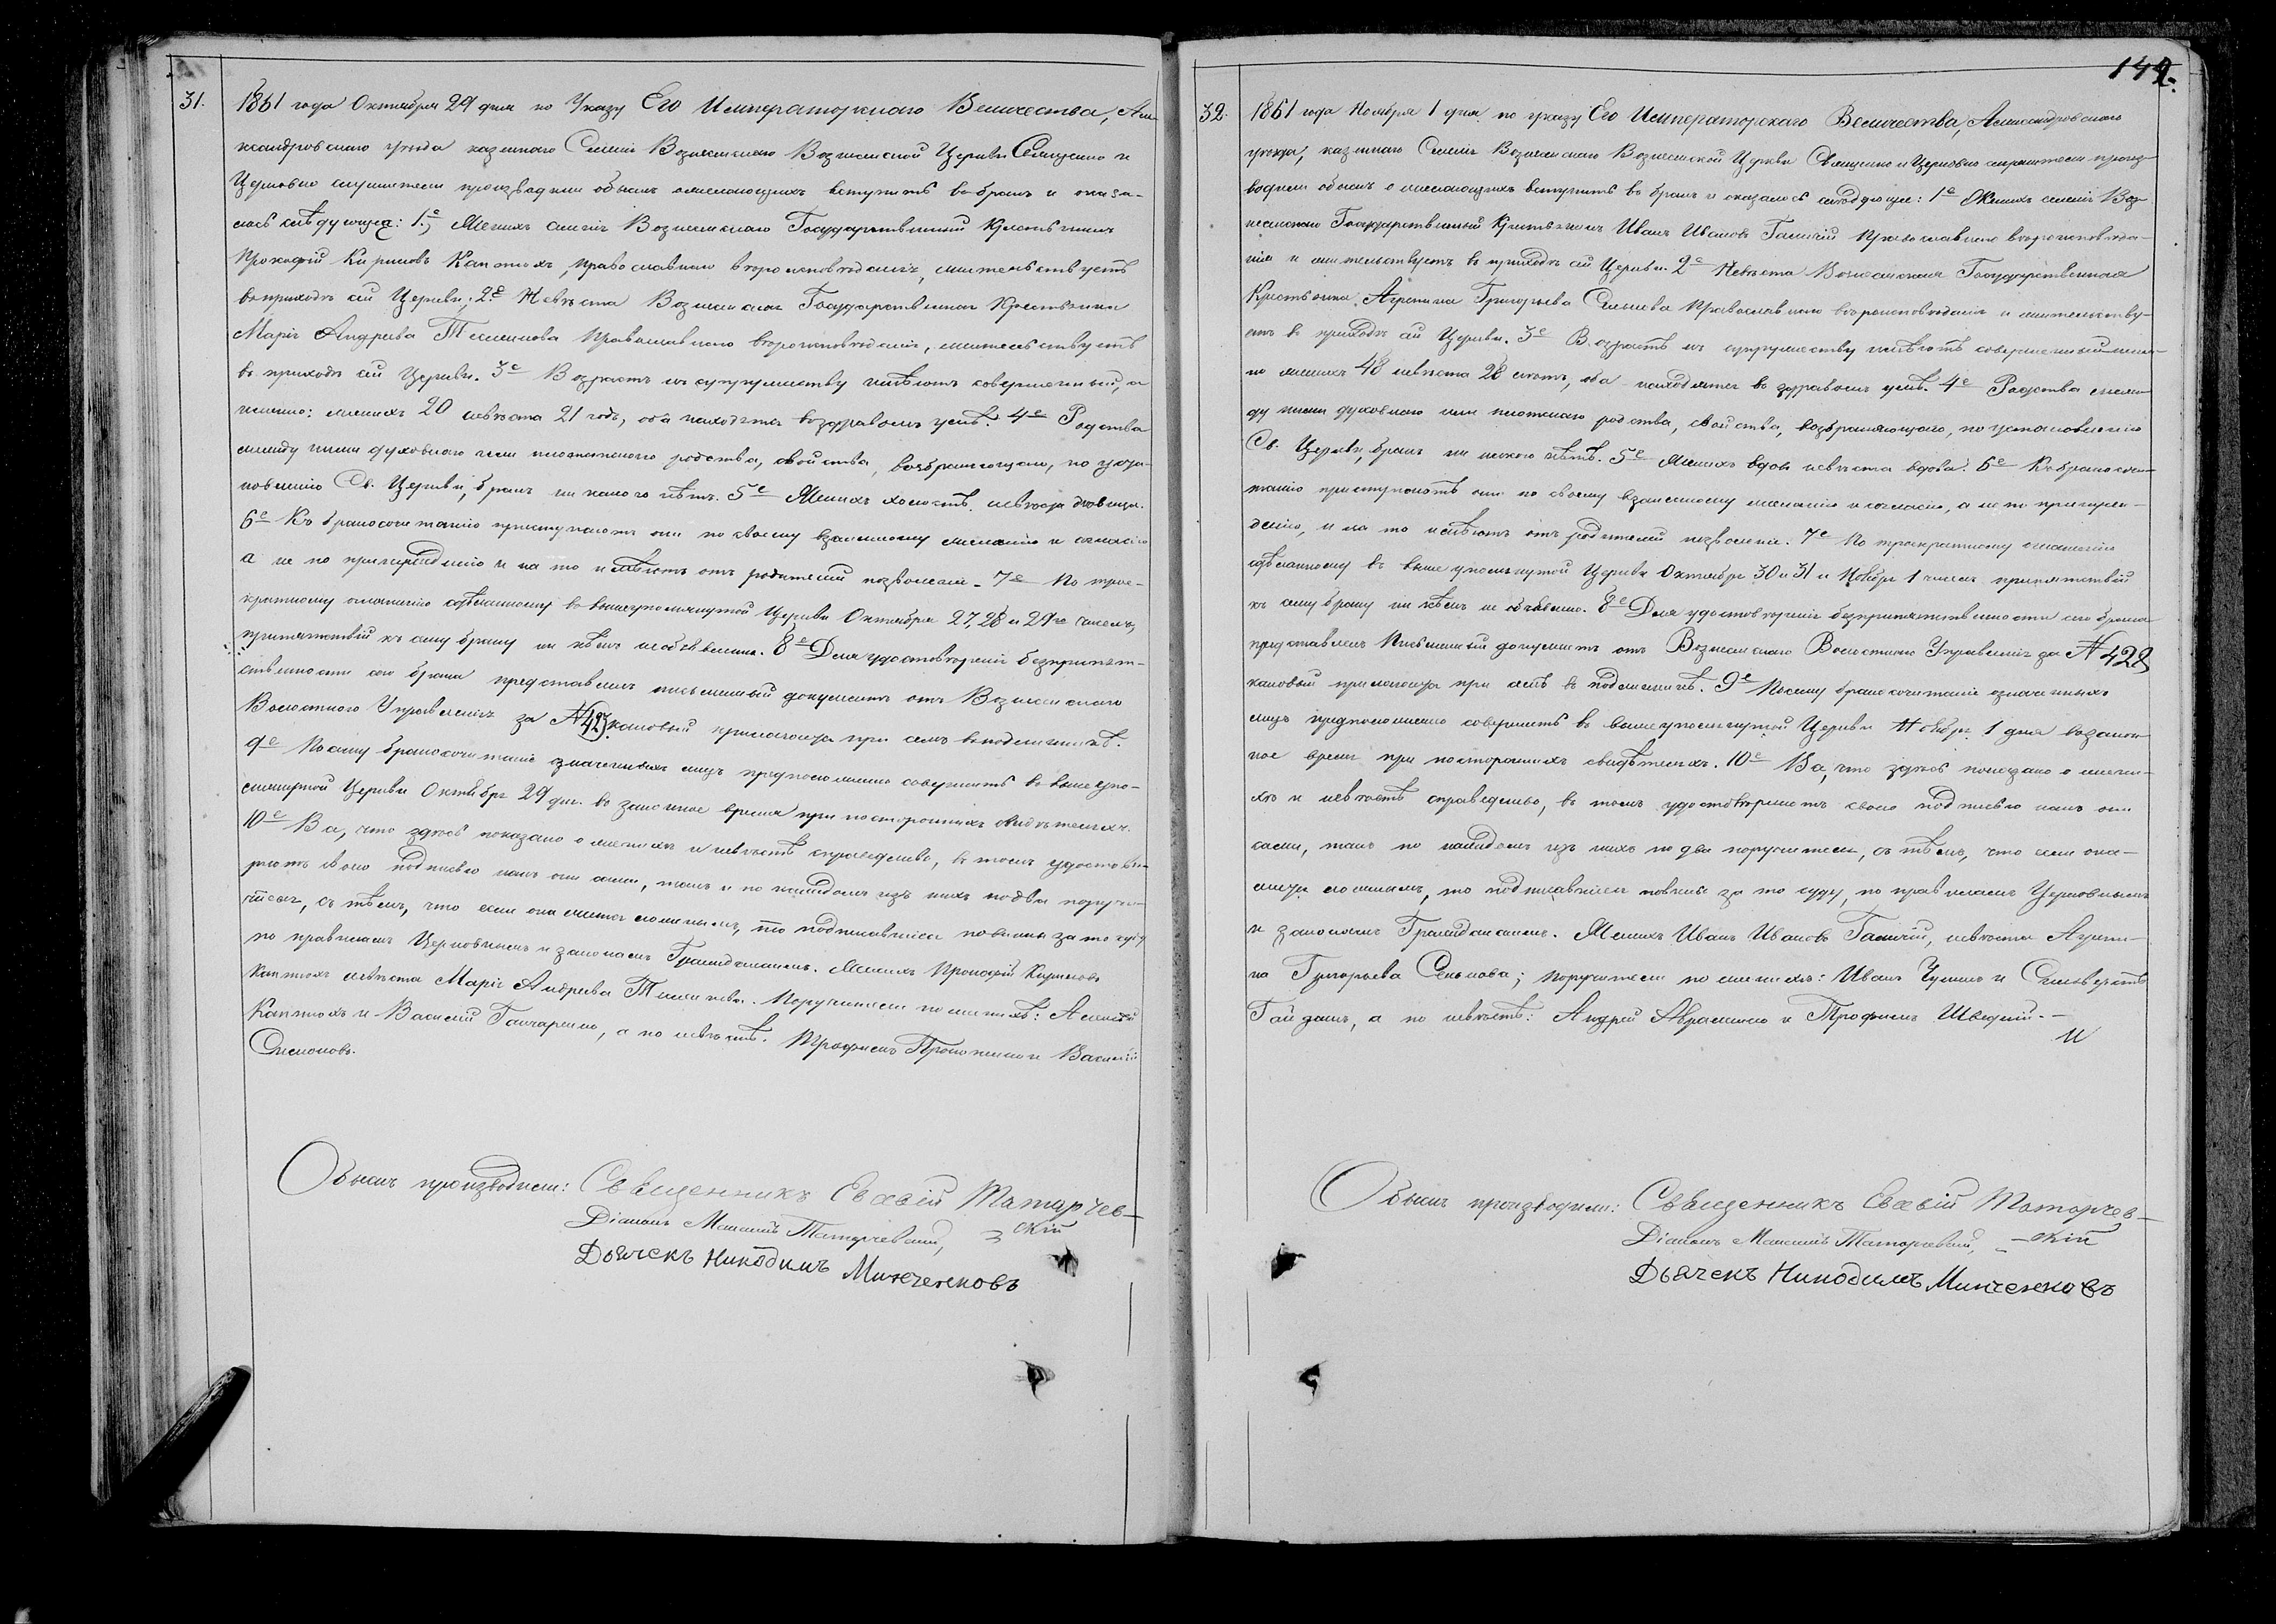 31. 1861 года Октября 29 дня по Указу Его Императорскаго Величества, Але-
ксандровскаго уезда казеннаго Селенія Вознесенскаго Вознесенской Церкви Священно и
Церковно служители производили обыскъ о желающихъ вступить въ бракъ и оказа-
лось слѣдующее: 1е, Женихъ селенія Вознесенскаго Государственный Крестьянинъ
Прокофій Кириловъ Каптюхъ, православнаго вѣроисповѣданія, жительствуетъ
въ приходѣ сей Церкви; 2е Невѣста Вознесенская Государственная Крестьянка
Марія Андреева православнаго вѣроисповѣданія, жительствуетъ
въ приходѣ сей Церкви. 3е Возрастъ къ супружеству имѣютъ совершенный, а
именно: женихъ 20 невѣста 21 годъ, оба находятся въ здравомъ умѣ. 4е Родства
между ними духовнаго или плотскаго родства, свойства, возбраняющаго, по уста-
новленію Св. Церкви, бракъ ни какого нѣтъ. 5е Женихъ холостъ, невѣста дѣвица.
6е Къ бракосочетанію приступаютъ они по своему взаимному желанію и согласію
а не по принужденію и на то имѣютъ отъ родителей позволеніе. 7е По трое-
кратному оглашенію сдѣланному въ вышеупомянутой Церкви Октября 27, 28 и 29го числъ,
препятствій къ сему браку ни кѣмъ необъявлено. 8е Для удостовѣренія безпрепят-
ственности сего брака представленъ письменный документъ отъ Вознесенскаго
Волостнаго Управленія за № каковый прилагается при семъ въ подлинникѣ.
9е Посему бракосочетаніе означенныхъ лицъ предположено совершить въ вышеупо-
мянутой Церкви Октября 29 дня въ законное время при постороннихъ свидѣтеляхъ.
10е Все, что здѣсь показано о женихѣ и невѣстѣ справедливо, въ томъ удостовѣ-
ряютъ своею подписью какъ они сами, такъ и по каждомъ изъ нихъ по два поручи-
теля, съ тѣмъ, что если окажется ложнымъ, то подписавшіеся повинны за то суду
по правиламъ Церковнымъ и законамъ Гражданскимъ. Женихъ Прокофій Кириловъ
Каптюхъ невѣста Марія Андреева Поручители по женихѣ: Алексѣй
Каптюхъ и Василій Ганчаренко, а по невѣстѣ. Трофимъ и Василій
Симоновъ.
Обыскъ производили: Священникъ Евсевій Татарчев-
скій
Діаконъ Татарчевскій,
Дьячекъ Никодимъ Минченковъ
142.
32. 1861 года Ноября 1 дня по указу Его Императорскаго Величества, Александровскаго
уезда, казеннаго Селенія Вознесенскаго Вознесенской Церкви Священно и Церковно служители произ-
водили обыскъ о желающихъ вступить въ бракъ и оказалось слѣдующее: 1е Женихъ селенія Воз-
несенскаго Государственный Крестьянинъ Иванъ Ивановъ Галичій Православнаго вѣроисповѣда-
нія и жительствуетъ въ приходѣ сей Церкви. 2е Невѣста Вознесенская Государственная
Крестьянка Агрипина Григорьева Сенькова Православнаго вѣроисповѣданія и жительству-
етъ въ приходѣ сей Церкви. 3е Возрастъ къ супружеству имѣютъ совершенный имен-
но женихъ 48 невѣста 28 лѣтъ, оба находятся въ здравомъ умѣ. 4е Родства меж-
ду ними духовнаго или плотскаго родства, свойства, возбраняющаго, по установленію
Св. Церкви, бракъ ни какого нѣтъ. 5е Женихъ вдовъ невѣста вдова. 6е Къ бракосоче-
танію приступаютъ они по своему взаимному желанію и согласію, а не по принуж-
денію, и на то имѣютъ отъ родителей позволеніе. 7е По троекратному оглашенію
сдѣланному въ выше упомянутой Церкви Октября 30 и 31 и Ноября 1 числъ препятствій
къ сему браку ни кѣмъ не объявлено. 8е Для удостовѣренія безпрепятственности сего брака
представленъ Письменный документъ отъ Вознесенскаго Волостнаго Управленія за № 428
каковый прилагается при семъ въ подлинникѣ. 9е Посему бракосочетаніе означенныхъ
лицъ предположено совершить въ вышеупомянутой Церкви Ноября 1 дня въ закон-
ное время при постороннихъ свидѣтеляхъ. 10е Все, что здѣсь показано о жени-
хѣ и невѣстѣ справедливо, въ томъ удостовѣряютъ своею подписью какъ они
сами, такъ по каждомъ изъ нихъ по два поручителя, съ тѣмъ, что если ока-
жется ложнымъ, то подписавшіеся повинны за то суду, по правиламъ Церковнымъ
и законамъ Гражданскимъ. Женихъ Иванъ Ивановъ Галичій, невѣста Агрипи-
на Григорьева Сенькова; поручители по женихѣ: Иванъ и
Гайдашъ, а по невѣстѣ: Андрей Авраменко и Трофимъ Шведкій.
Обыскъ производили: Священникъ Евсевій Татарчев-
скій
Діаконъ Татарчевскій,
Дьячекъ Никодимъ Минченковъ